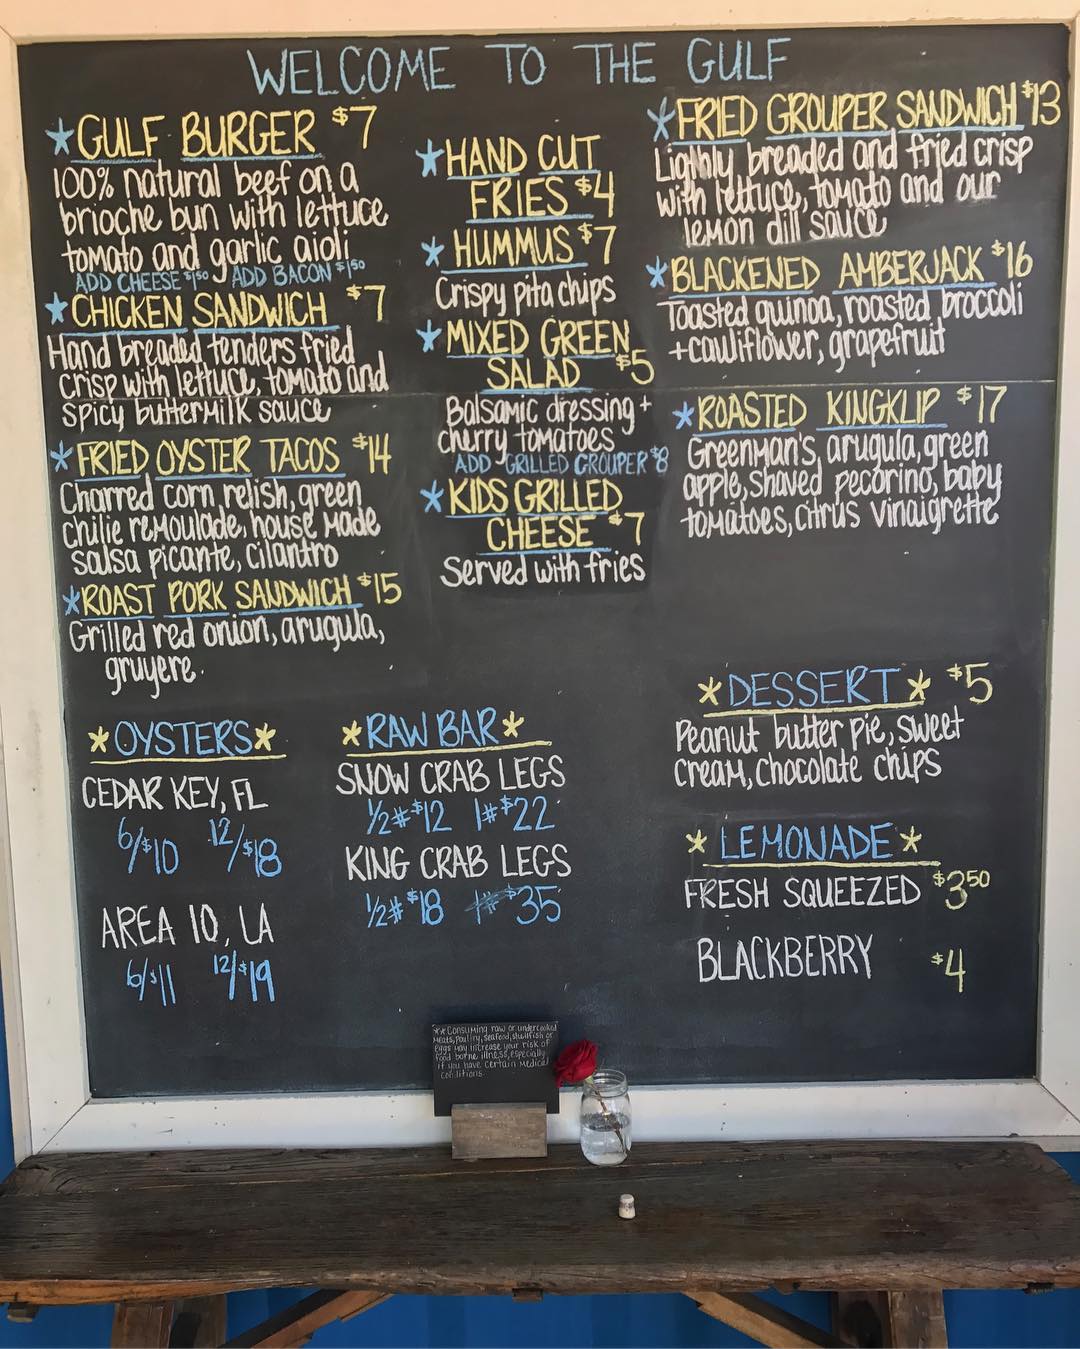 WELCOME TO THE GULF
GULF BURGER $7
100% natural beef on a
brioche bun with lettuce
tomato and garlic aioli
ADD CHEESE $1.50 ADD BACON $1.50
CHICKEN SANDWICH $7
Hand breaded tenders fried
crisp with lettuce, tomato and
spicy buttermilk sauce
FRIED OYSTER TACOS $14
Charred corn relish, green
chilie remoulade, house made
salsa picante, cilantro
ROAST PORK SANDWICH $15
Grilled red onion, arugula,
gruyere.
HAND CUT
FRIES $4
HUMMUS $7
Crispy pita chips
MIXED GREEN
SALAD $5
Balsamic dressing +
cherry tomatoes
ADD GRILLED GROUPER $8
KIDS GRILLED
CHEESE $7
Served with fries
FRIED GROUPER SANDWICH $13
Lighly breaded and fried crisp
with lettuce, tomato and our
lemon dill sauce
BLACKENED AMBERJACK $16
Toasted quinoa, roasted broccoli
+cauliflower, grapefruit
ROASTED KINGKLIP $17
Greenman's arugula, green
apple, shaved pecorino, baby
tomatoes, citrus vinaigrette
OYSTERS
CEDAR KEY, FL
6/$10 12/$18
AREA 10, LA
6/$11 12/$19
RAW BAR
SNOW CRAB LEGS
1/2# $12 1# $22
KING CRAB LEGS
1/2# $18 1# $35
DESSERT $5
Peanut butter pie, sweet
cream, chocolate chips
LEMONADE
FRESH SQUEEZED $3.50
BLACKBERRY $4
**Consuming raw or undercooked
meats, poultry, seafood, shellfish or
eggs may increase your risk of
food borne illness, especially
if you have certain medical
conditions